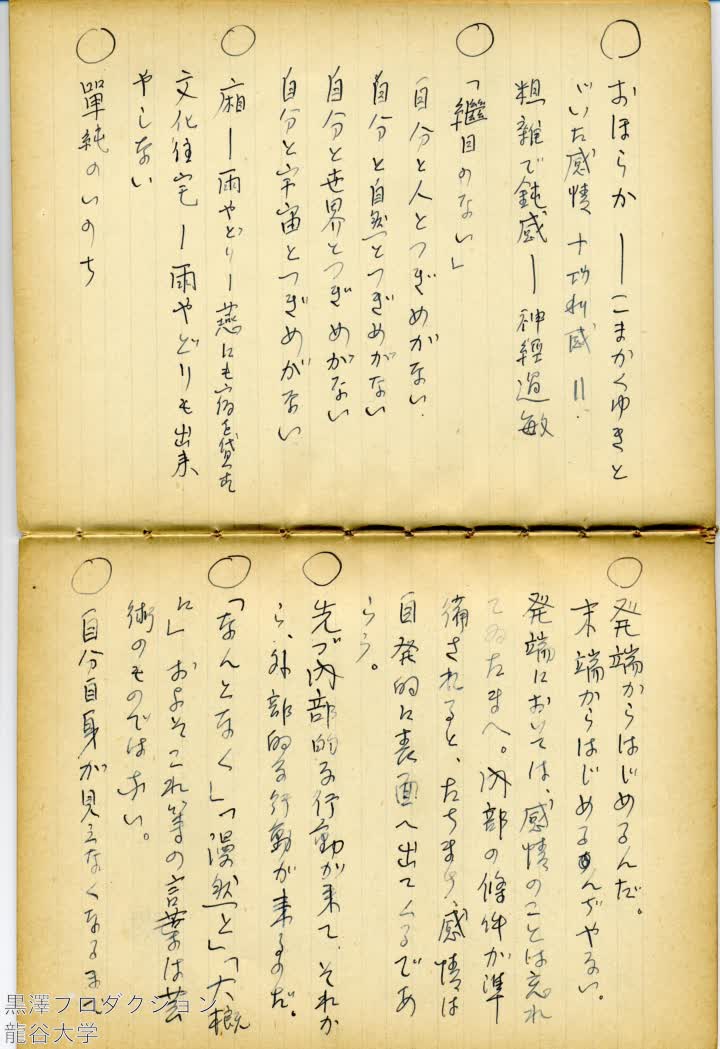 ○ おほらか ー こまかくゆきと
どいた感情 十功利感 ＝
粗雑で鈍感 ー 神経過敏
○ 「繼目のない」
自分と人とつぎめがない．
自分と自然とつぎめがない
自分と世界とつぎめがない
自分と宇宙とつぎめがない
○ 廂 ー 雨やどり ー 燕にも宿を貸す
文化住宅 ー 雨やどりも出来
やしない
○ 單純のいのち
○ 発端からはじめるんだ。
末端からはじめるんぢやない。
発端においては、感情のことは忘れ
てゐたまへ。内部の條件が準
備されると、たちまち、感情は
自発的に表面へ出てくるであ
らう。
○ 先づ内部的な行動が来て、それか
ら、外部的な行動が来るのだ。
○ 「なんとなく」「漫然と」「大概
に」およそこれ等の言葉は芸
術のものではない。
○ 自分自身が見えなくなるまで
黒澤プロダクション
龍谷大学